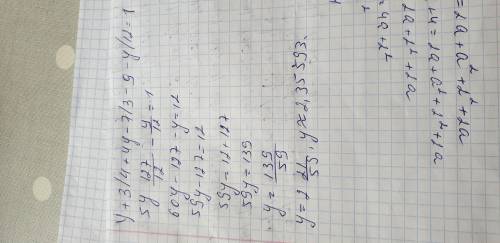 y + 3/4 + 4y - 7/3 - 9 - y/12 = 1
5y - 127/12 - y/12 = 1
60y - 127 - y = 12
59y - 127 = 12
59y = 12 + 127
59y = 139
y = 139/59
y = 2 21/59, y ≈ 2,35593.
= 2a + a² + 2² + 2a
+ 4 = 2a + a² + 2² + 2a
2a + 2² + 2a
= 4a + 2²